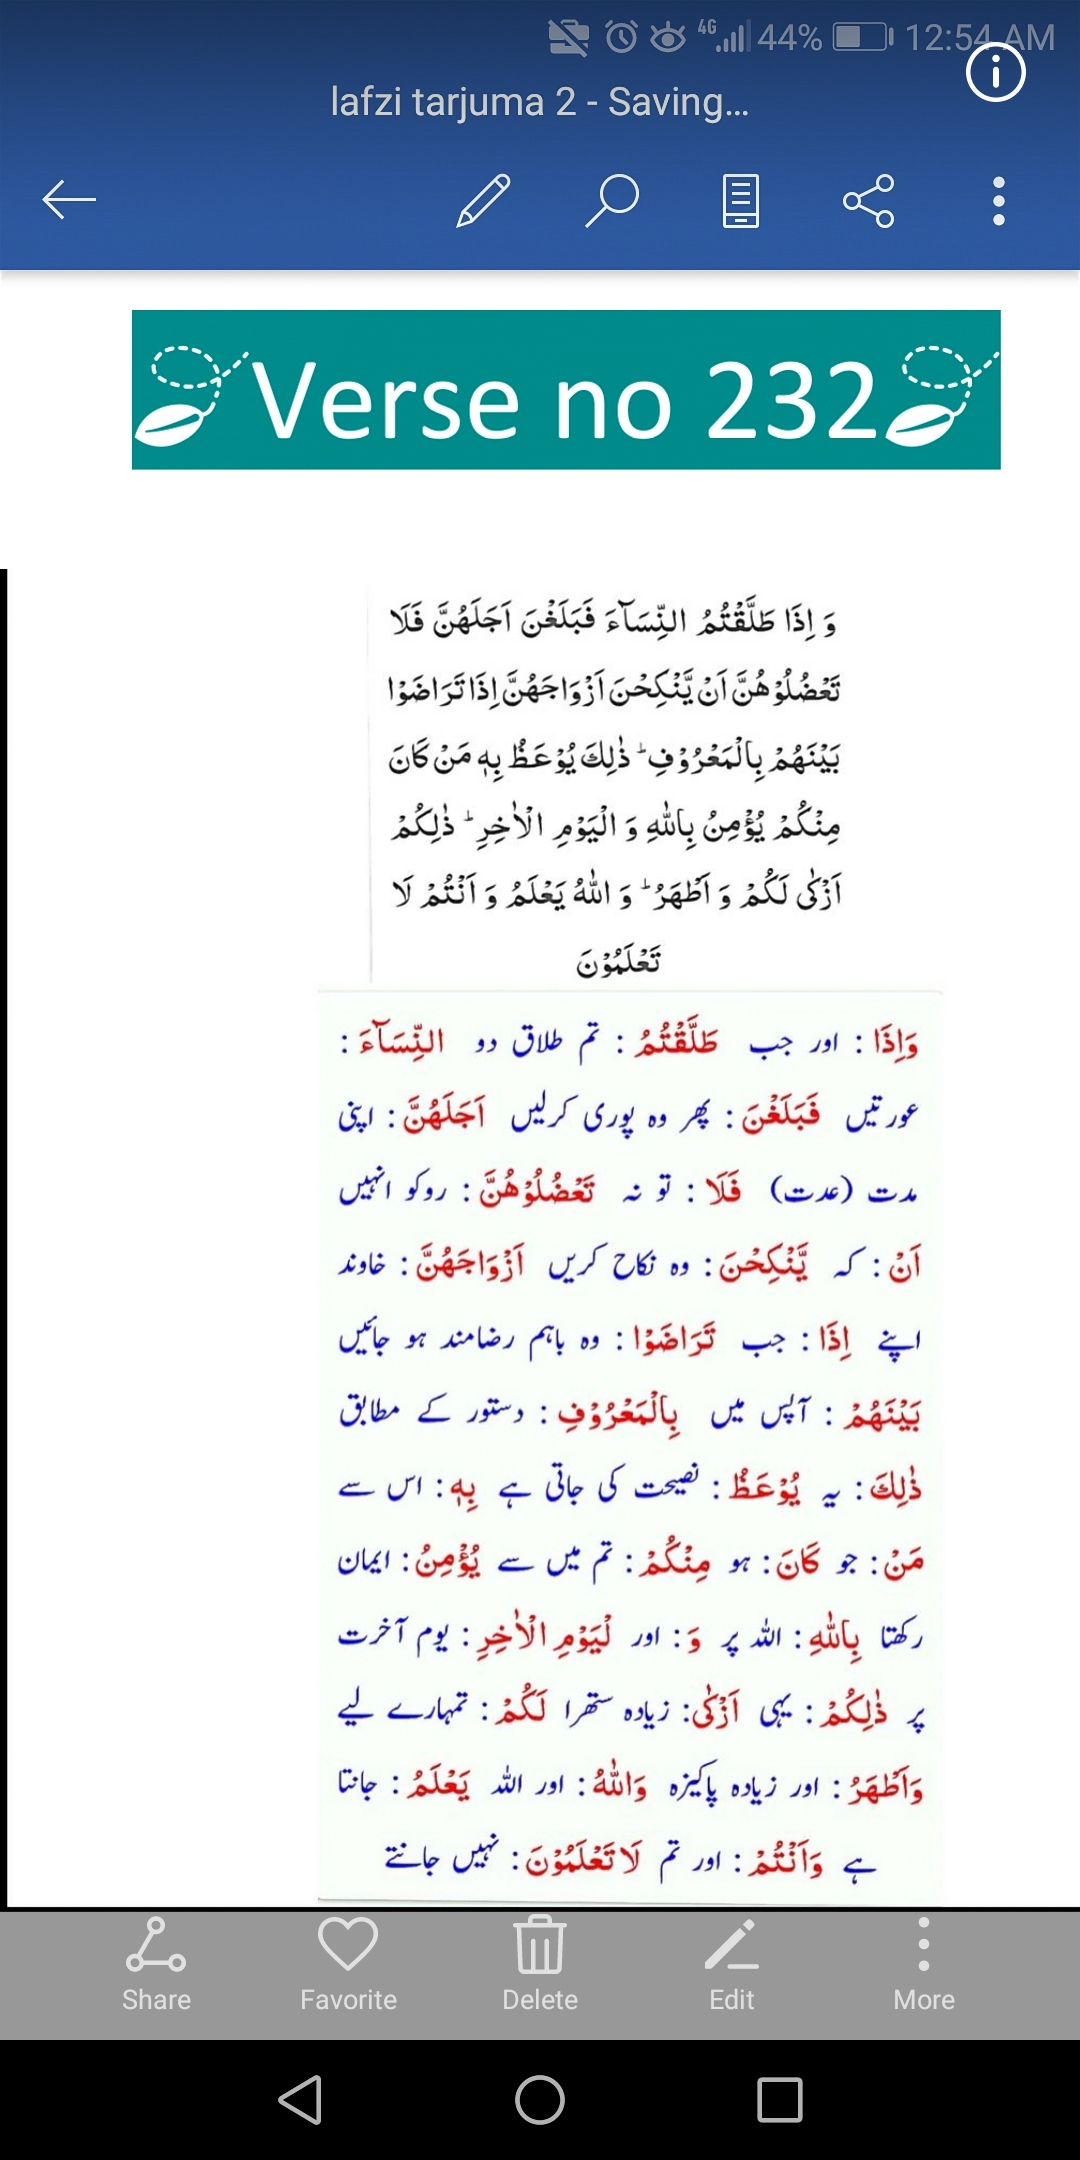 44% 12:54 AM
4G
lafzi tarjuma 2 - Saving...
Verse no 232
وَ اِذَا طَلَّقْتُمُ النِّسَآءَ فَبَلَغْنَ اَجَلَهُنَّ فَلَا
تَعْضُلُوْهُنَّ اَنْ يَّنْكِحْنَ اَزْوَاجَهُنَّ اِذَا تَرَاضَوْا
بَيْنَهُمْ بِالْمَعْرُوْفِ ؕ ذٰلِكَ يُوْعَظُ بِهٖ مَنْ كَانَ
مِنْكُمْ يُؤْمِنُ بِاللّٰهِ وَ الْيَوْمِ الْاٰخِرِ ؕ ذٰلِكُمْ
اَزْكٰى لَكُمْ وَ اَطْهَرُ ؕ وَ اللّٰهُ يَعْلَمُ وَ اَنْتُمْ لَا
تَعْلَمُوْنَ
وَاِذَا : اور جب طَلَّقْتُمُ : تم طلاق دو النِّسَآءَ :
عورتیں فَبَلَغْنَ : پھر وہ پوری کرلیں اَجَلَهُنَّ : اپنی
مدت (عدت) فَلَا : تو نہ تَعْضُلُوْهُنَّ : روکو انہیں
اَنْ : کہ يَّنْكِحْنَ : وہ نکاح کریں اَزْوَاجَهُنَّ : خاوند
اپنے اِذَا : جب تَرَاضَوْا : وہ باہم رضامند ہو جائیں
بَيْنَهُمْ : آپس میں بِالْمَعْرُوْفِ : دستور کے مطابق
ذٰلِكَ : یہ يُوْعَظُ : نصیحت کی جاتی ہے بِهٖ : اس سے
مَنْ : جو كَانَ : ہو مِنْكُمْ : تم میں سے يُؤْمِنُ : ایمان
رکھتا بِاللّٰهِ : اللہ پر وَ : اور لْيَوْمِ الْاٰخِرِ : یوم آخرت
پر ذٰلِكُمْ : یہی اَزْكٰى : زیادہ ستھرا لَكُمْ : تمہارے لیے
وَاَطْهَرُ : اور زیادہ پاکیزہ وَاللّٰهُ : اور اللہ يَعْلَمُ : جانتا
ہے وَاَنْتُمْ : اور تم لَا تَعْلَمُوْنَ : نہیں جانتے
Share Favorite Delete Edit More